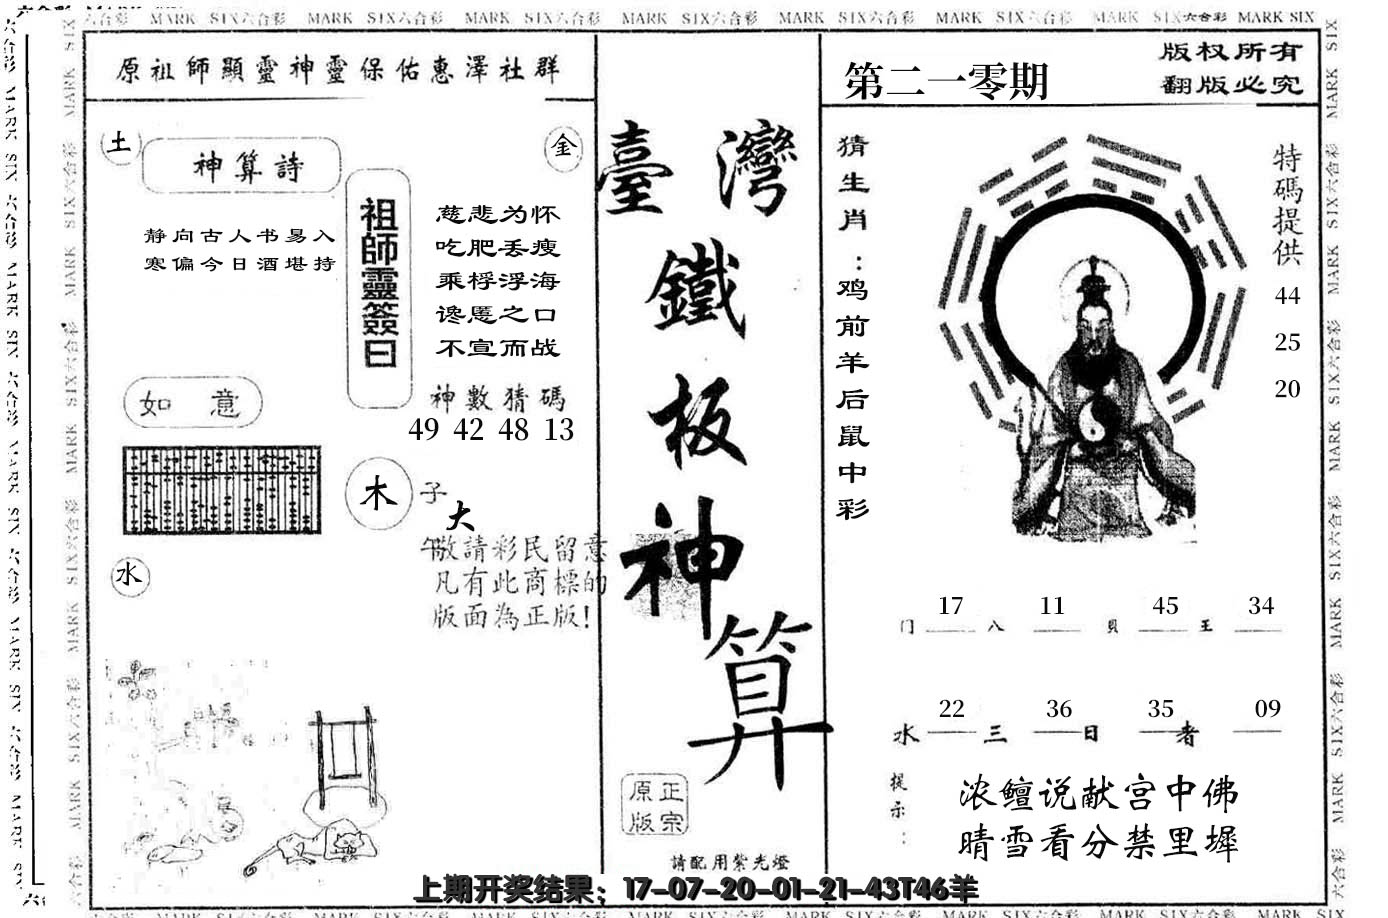 六合彩 MARK SIX六合彩 MARK SIX六合彩 MARK SIX六合彩 MARK SIX六合彩 MARK SIX六合彩 MARK SIX六合彩 MARK SIX六合彩 MARK SIX
原祖師顯靈神靈保佑惠澤社群
土
神算詩
金
静向古人书易入
寒偏今日酒堪持
祖師靈簽曰
慈悲为怀
吃肥丢瘦
乘桴浮海
谗慝之口
不宣而战
神數猜碼
49 42 48 13
如意
木
子
大
午
敬請彩民留意
凡有此商標的
版面為正版!
水
臺灣
鐵
板
神
算
正宗
原版
請配用紫光燈
第二一零期
版权所有
翻版必究
猜生肖:鸡前羊后鼠中彩
特碼提供
44
25
20
17 11 45 34
门 八 貝 王
22 36 35 09
水 三 日 者
提示:
浓鳣说献宫中佛
晴雪看分禁里墀
上期开奖结果：17-07-20-01-21-43T46羊